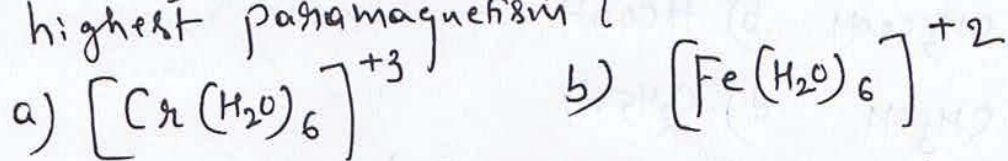 highest paramagnetism (
a) [Cr(H₂O)₆]⁺³ b) [Fe(H₂O)₆]⁺²